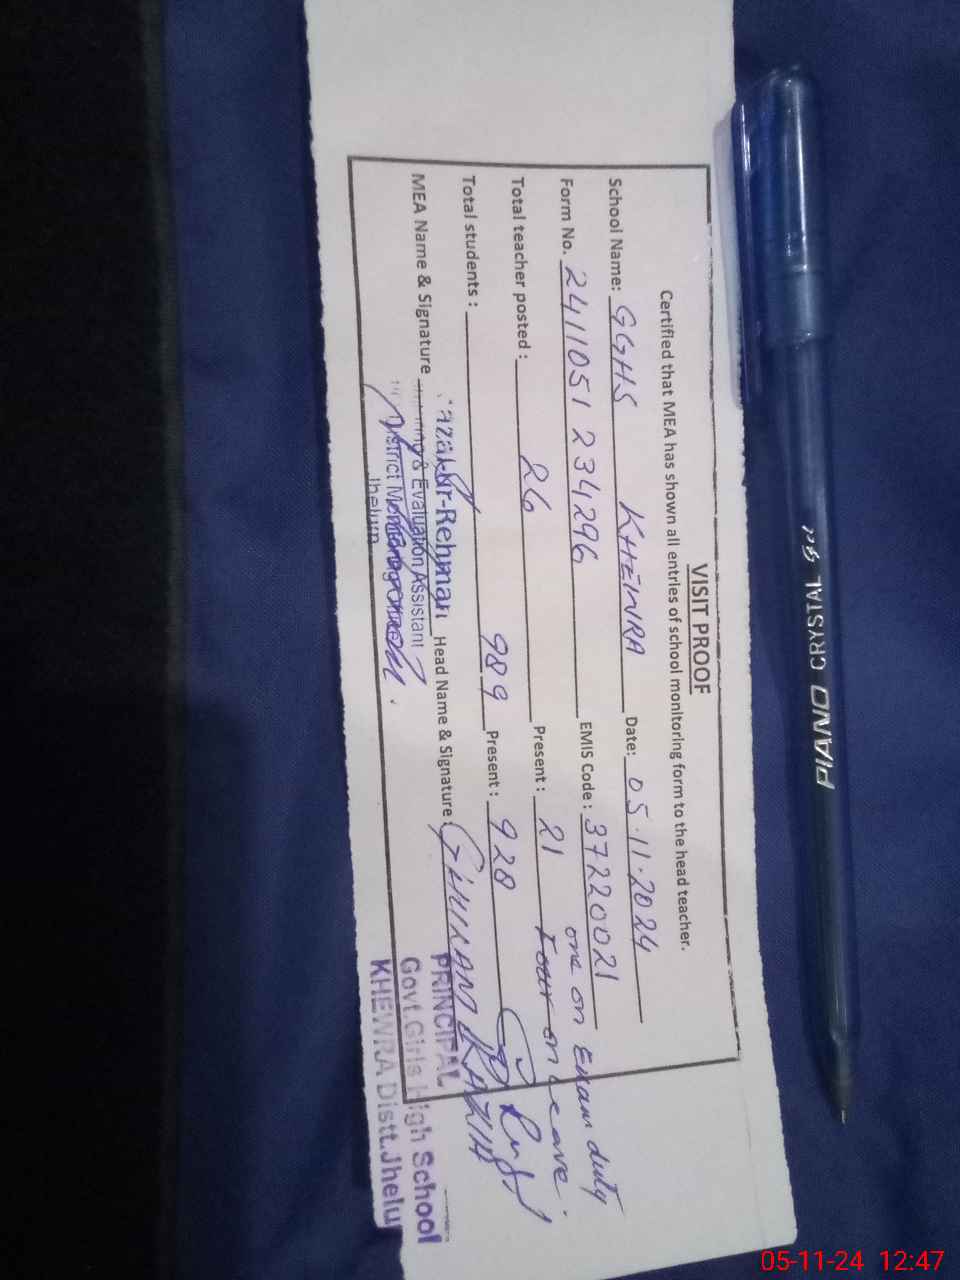 VISIT PROOF
Certified that MEA has shown all entries of school monitoring form to the head teacher.
School Name: GGHS KHEWRA Date: 05.11.2024
Form No. 2411051234296 EMIS Code: 37220021
one on Exam duty
Total teacher posted: 26 Present: 21 Four on leave.
Total students: 989 Present: 928
MEA Name & Signature Head Name & Signature GHULAM
-ur-Rehman
& Evaluation Assistant
District
Jhelum
PRINCIPAL
Govt.Girls High School
KHEWRA Distt.Jhelu
PIANO CRYSTAL
05-11-24 12:47